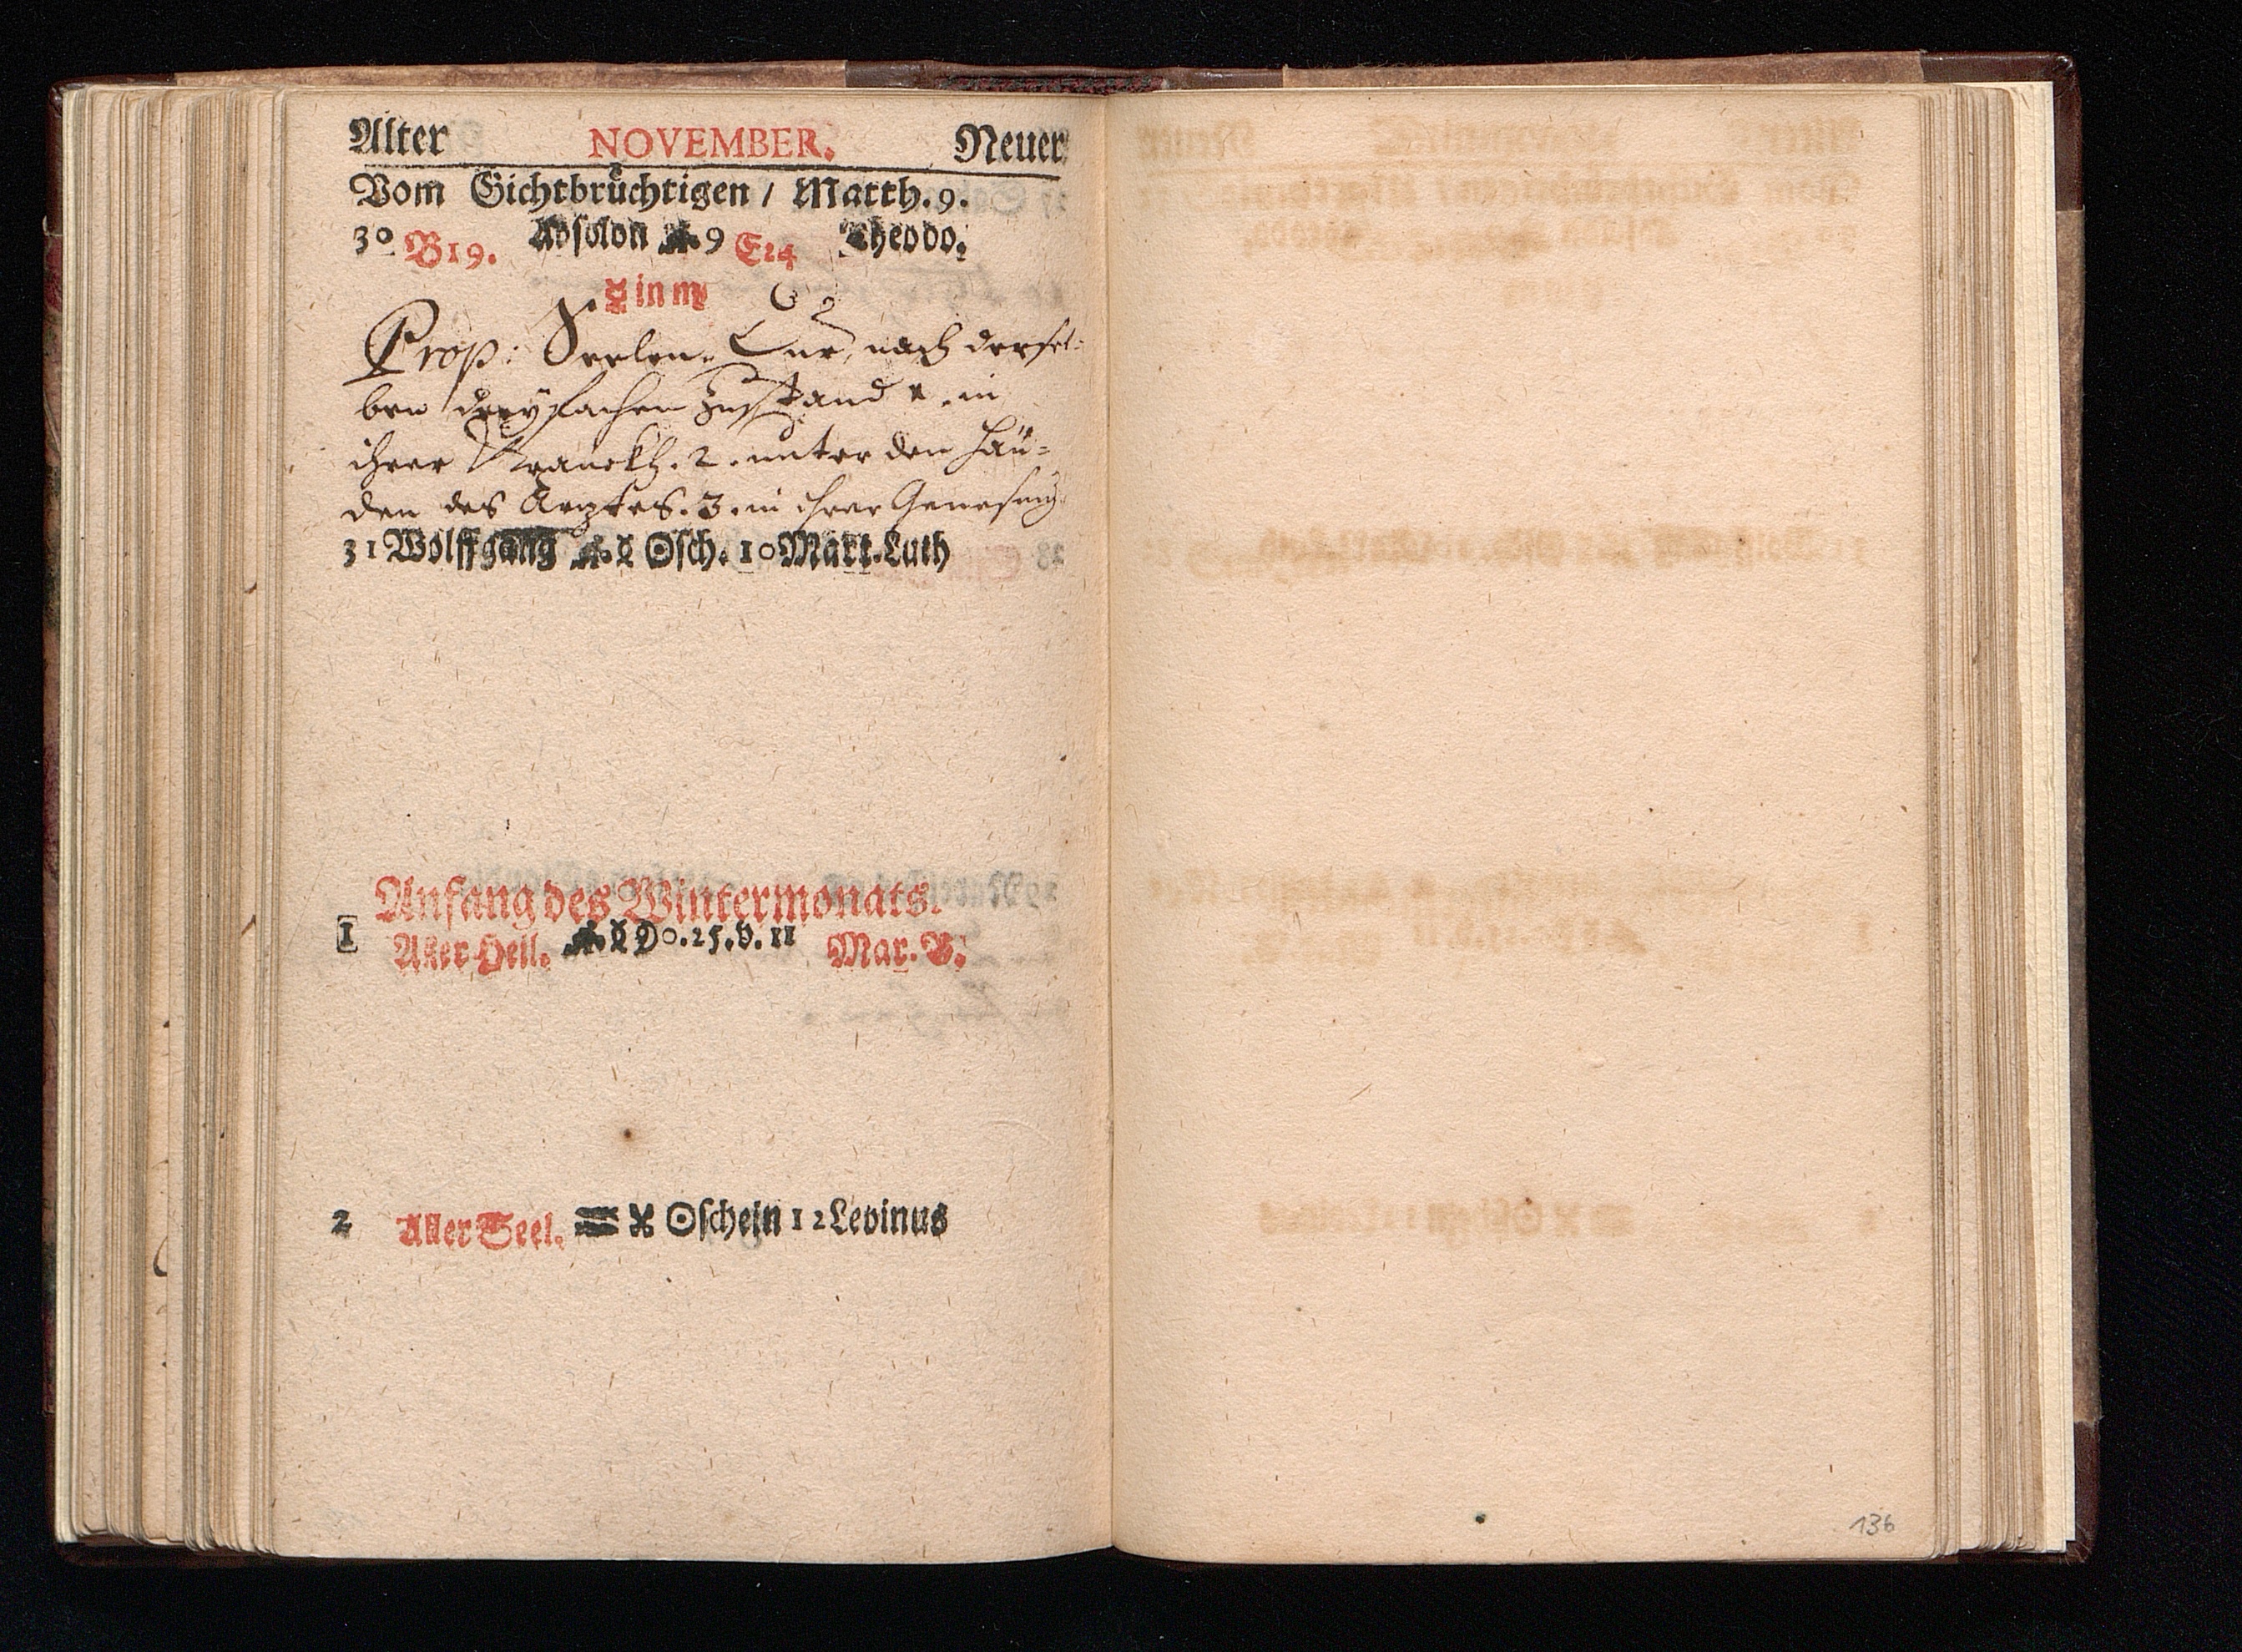 Alter NOVEMBER. Neuer
Vom Gichtbrůchtigen / Matth. 9.
30 B19. Absolon 9 E24 Theodo.
☿ in ♏
Prop: Seelen-Cur, nach dersel-
ben dreyfachen Zustand 1. in
ihrer Kranckh. 2. unter den Hän-
den des Arztes. 3. in ihrer Genesung.
31 Wolffgang ☿ ☉sch. 10 Mart. Luth
Anfang des Wintermonats.
1 Aller Heil. 0. 25. v. 11 Mar. B.
2 Aller Seel. ♒ ☉schein 12 Levinus
136